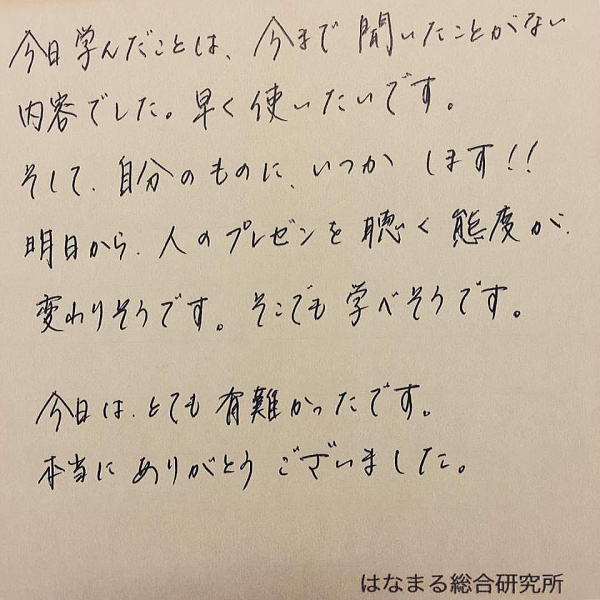 今日学んだことは、今まで聞いたことがない
内容でした。早く使いたいです。
そして、自分のものに、いつか します!!
明日から、人のプレゼンを聴く態度が、
変わりそうです。そこでも学べそうです。
今日は、とても有難かったです。
本当にありがとうございました。
はなまる総合研究所